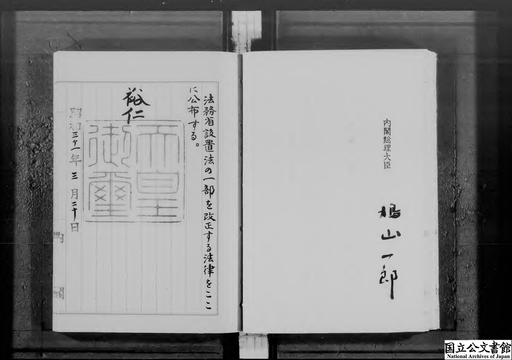 法務省設置法の一部を改正する法律をここ
に公布する。
裕仁
天皇
御璽
昭和三十一年三月二十日
内閣総理大臣
鳩山一郎
国立公文書館
National Archives of Japan